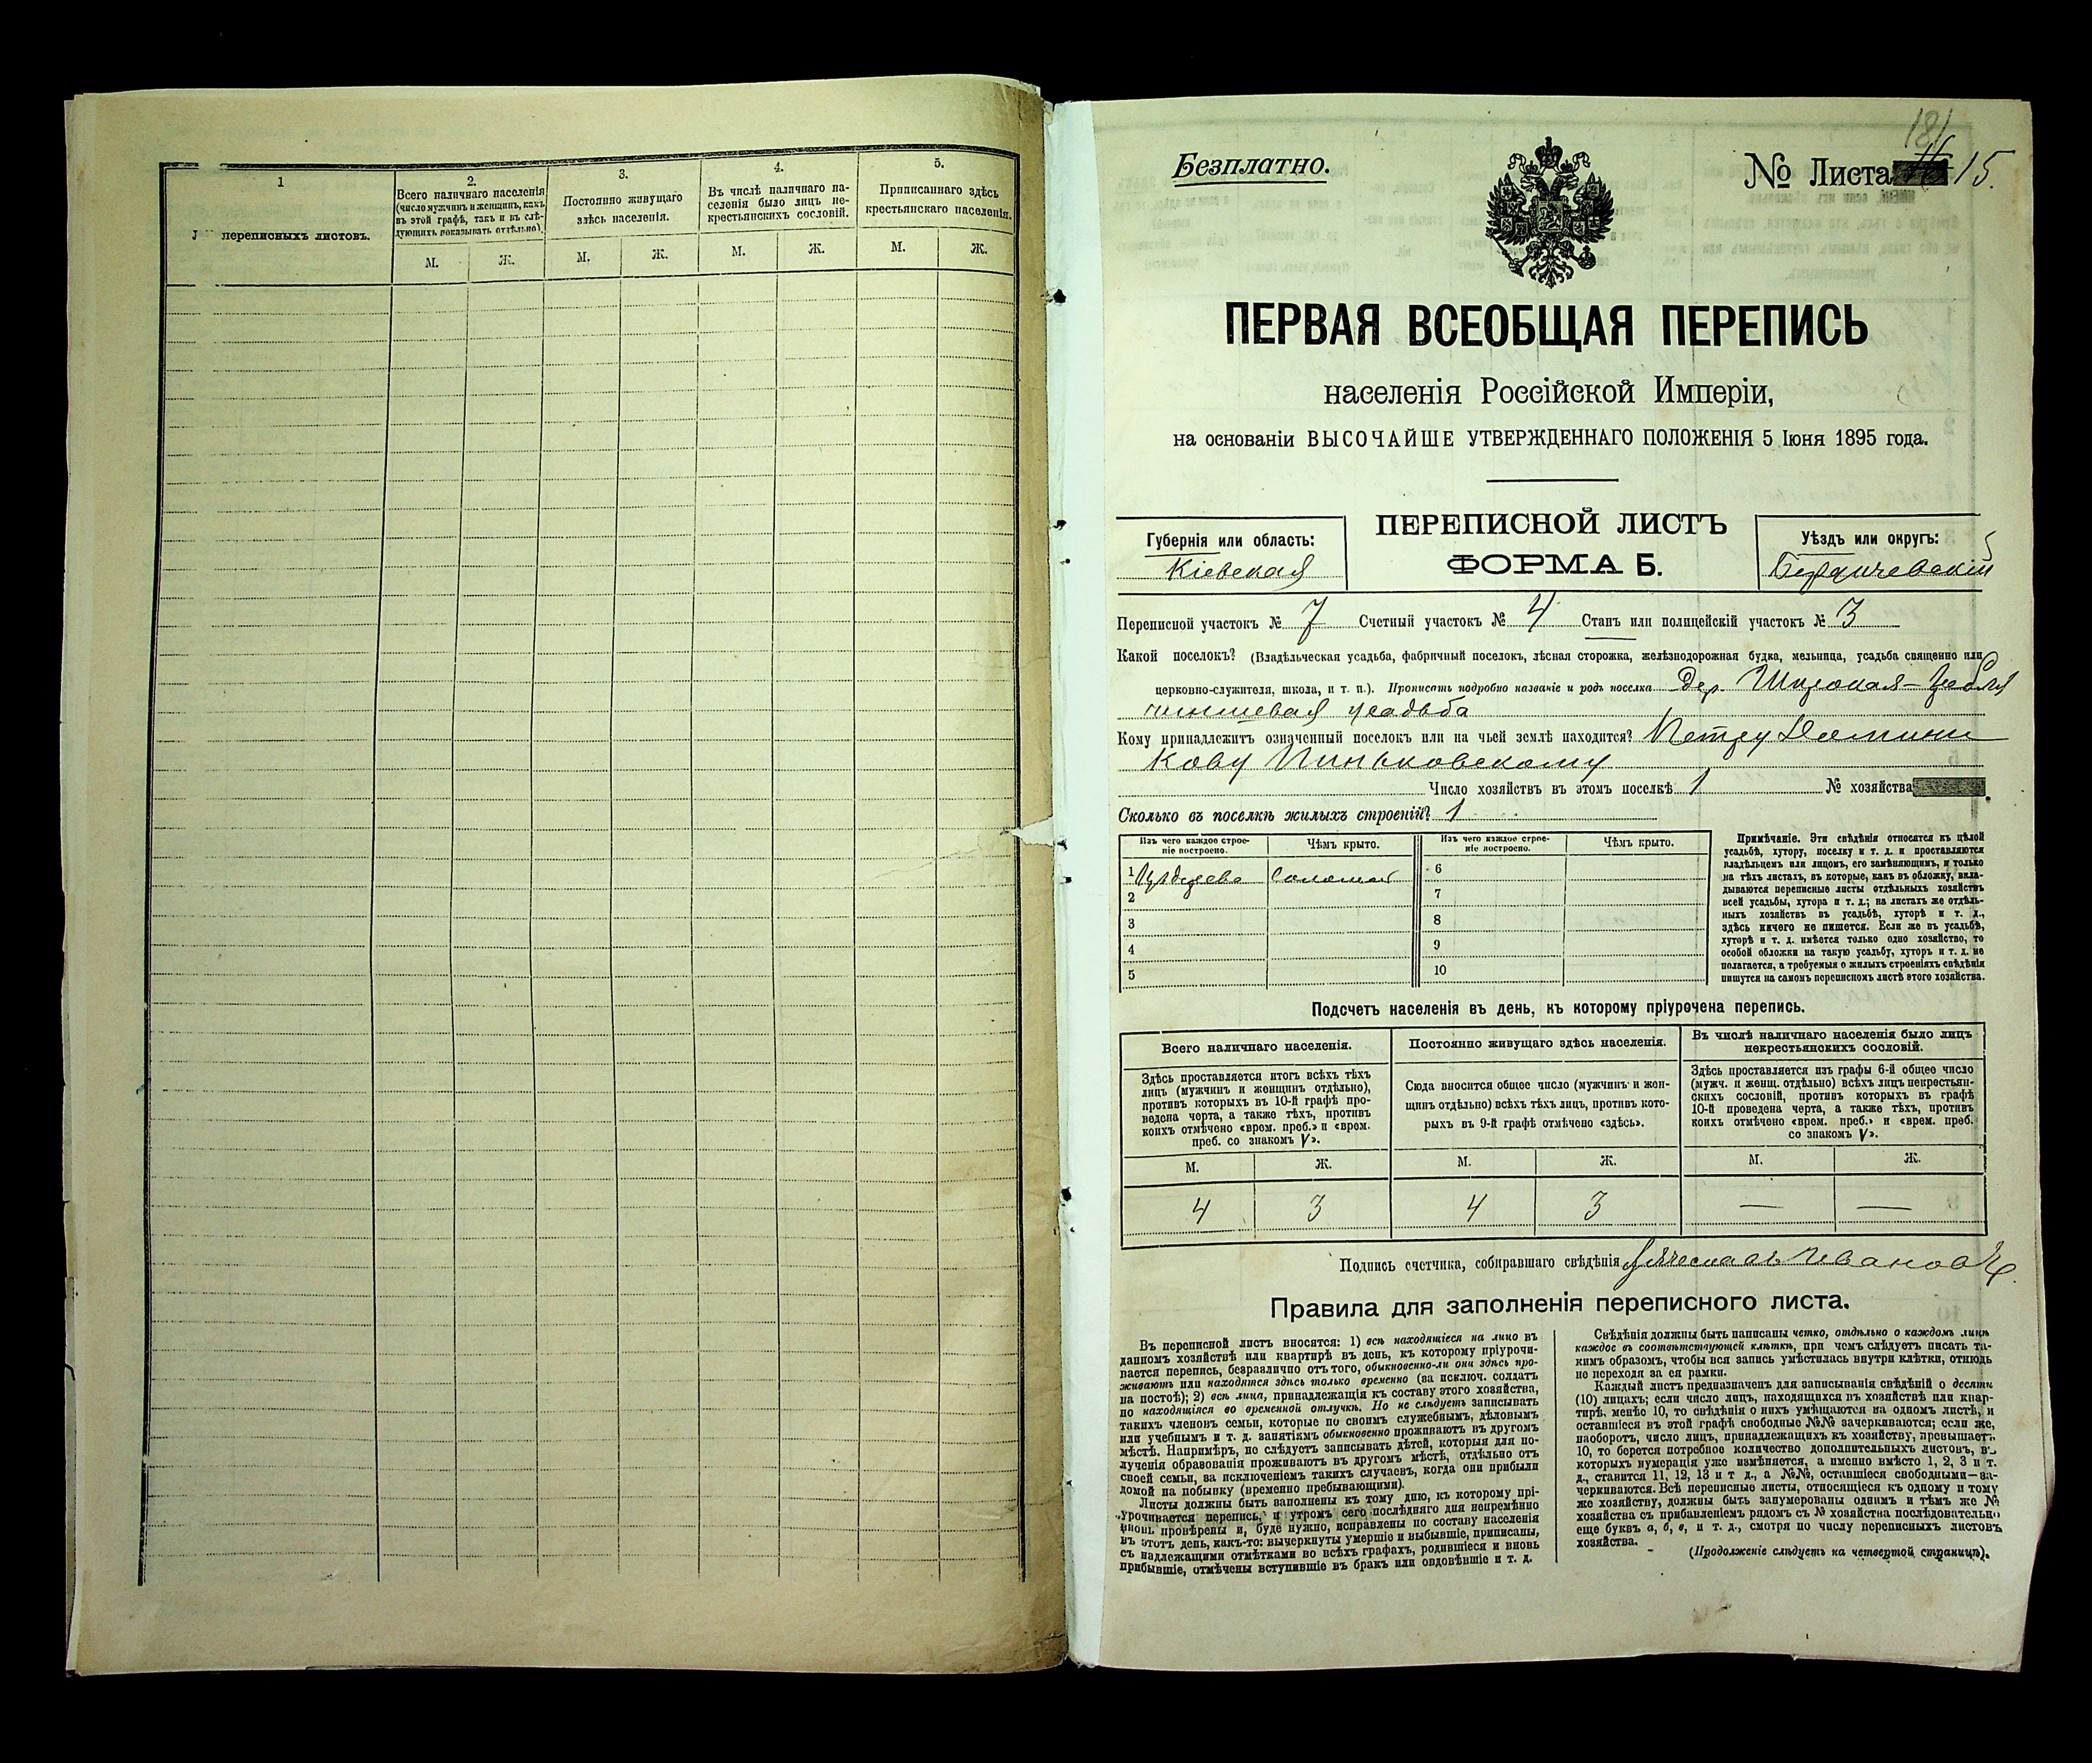 1
переписныхъ листовъ.
2.
Всего наличнаго населенія
(число мужчинъ и женщинъ, какъ
въ этой графѣ, такъ и въ слѣ-
дующихъ показывать отдѣльно).
3.
Постоянно живущаго
здѣсь населенія.
4.
Въ числѣ наличнаго на-
селенія было лицъ не-
крестьянскихъ сословій.
5.
Приписаннаго здѣсь
крестьянскаго населенія.
М. Ж. М. Ж. М. Ж. М. Ж.
181
Безплатно.
№ Листа 15.
ПЕРВАЯ ВСЕОБЩАЯ ПЕРЕПИСЬ
населенія Россійской Имперіи,
на основаніи ВЫСОЧАЙШЕ УТВЕРЖДЕННАГО ПОЛОЖЕНІЯ 5 Іюня 1895 года.
Губернія или область:
Кіевская
ПЕРЕПИСНОЙ ЛИСТЪ
ФОРМА Б.
Уѣздъ или округъ:
Бердичевскій
Переписной участокъ № 7 Счетный участокъ № 4 Станъ или полицейскій участокъ № 3
Какой поселокъ? (Владѣльческая усадьба, фабричный поселокъ, лѣсная сторожка, желѣзнодорожная будка, мельница, усадьба священно или
церковно-служителя, школа, и т. п.). Прописать подробно названіе и родъ поселка Дер. Широкая-Гребля
чиншевая усадьба
Кому принадлежитъ означенный поселокъ или на чьей землѣ находится? Петру
кову Пиньковскому
Число хозяйствъ въ этомъ поселкѣ 1 № хозяйства
Сколько въ поселкѣ жилыхъ строеній? 1
Изъ чего каждое строе-
ніе построено.
Чѣмъ крыто.
Изъ чего каждое строе-
ніе построено.
Чѣмъ крыто.
1 Изъ дерева Соломой 6
2 7
3 8
4 9
5 10
Примѣчаніе. Эти свѣдѣнія относятся къ цѣлой
усадьбѣ, хутору, поселку и т. д. и проставляются
владѣльцемъ или лицомъ, его замѣняющимъ, и только
на тѣхъ листахъ, въ которые, какъ въ обложку, вкла-
дываются переписные листы отдѣльныхъ хозяйствъ
всей усадьбы, хутора и т. д.; на листахъ же отдѣль-
ныхъ хозяйствъ въ усадьбѣ, хуторѣ и т. д.,
здѣсь ничего не пишется. Если же въ усадьбѣ,
хуторѣ и т. д. имѣется только одно хозяйство, то
особой обложки на такую усадьбу, хуторъ и т. д. не
полагается, а требуемыя о жилыхъ строеніяхъ свѣдѣнія
пишутся на самомъ переписномъ листѣ этого хозяйства.
Подсчетъ населенія въ день, къ которому пріурочена перепись.
Всего наличнаго населенія.
Здѣсь проставляется итогъ всѣхъ тѣхъ
лицъ (мужчинъ и женщинъ отдѣльно),
противъ которыхъ въ 10-й графѣ про-
ведена черта, а также тѣхъ, противъ
коихъ отмѣчено «врем. преб.» и «врем.
преб. со знакомъ V».
Постоянно живущаго здѣсь населенія.
Сюда вносится общее число (мужчинъ и жен-
щинъ отдѣльно) всѣхъ тѣхъ лицъ, противъ кото-
рыхъ въ 9-й графѣ отмѣчено «здѣсь».
Въ числѣ наличнаго населенія было лицъ
некрестьянскихъ сословій.
Здѣсь проставляется изъ графы 6-й общее число
(мужч. и женщ. отдѣльно) всѣхъ лицъ некрестьян-
скихъ сословій, противъ которыхъ въ графѣ
10-й проведена черта, а также тѣхъ, противъ
коихъ отмѣчено «врем. преб.» и «врем. преб.
со знакомъ V».
М. Ж. М. Ж. М. Ж.
4 3 4 3 — —
Подпись счетчика, собиравшаго свѣдѣнія
Правила для заполненія переписного листа.
Въ переписной листъ вносятся: 1) всѣ находящіеся на лицо въ
данномъ хозяйствѣ или квартирѣ въ день, къ которому пріурочи-
вается перепись, безразлично отъ того, обыкновенно-ли они здѣсь про-
живаютъ или находятся здѣсь только временно (за исключ. солдатъ
на постоѣ); 2) всѣ лица, принадлежащія къ составу этого хозяйства,
но находящіяся во временной отлучкѣ. Но не слѣдуетъ записывать
такихъ членовъ семьи, которые по своимъ служебнымъ, дѣловымъ
или учебнымъ и т. д. занятіямъ обыкновенно проживаютъ въ другомъ
мѣстѣ. Напримѣръ, не слѣдуетъ записывать дѣтей, которыя для по-
лученія образованія проживаютъ въ другомъ мѣстѣ, отдѣльно отъ
своей семьи, за исключеніемъ такихъ случаевъ, когда они прибыли
домой на побывку (временно пребывающими).
Листы должны быть заполнены къ тому дню, къ которому прі-
урочивается перепись, и утромъ сего послѣдняго дня непремѣнно
вновь провѣрены и, буде нужно, исправлены по составу населенія
въ этотъ день, какъ-то: вычеркнуты умершіе и выбывшіе, приписаны,
съ надлежащими отмѣтками во всѣхъ графахъ, родившіеся и вновь
прибывшіе, отмѣчены вступившіе въ бракъ или овдовѣвшіе и т. д.
Свѣдѣнія должны быть написаны четко, отдѣльно о каждомъ лицѣ
каждое въ соотвѣтствующей клѣткѣ, при чемъ слѣдуетъ писать та-
кимъ образомъ, чтобы вся запись умѣстилась внутри клѣтки, отнюдь
не переходя за ея рамки.
Каждый листъ предназначенъ для записыванія свѣдѣній о десяти
(10) лицахъ; если число лицъ, находящихся въ хозяйствѣ или квар-
тирѣ, менѣе 10, то свѣдѣнія о нихъ умѣщаются на одномъ листѣ, и
оставшіеся въ этой графѣ свободные №№ зачеркиваются; если же,
наоборотъ, число лицъ, принадлежащихъ къ хозяйству, превышаетъ
10, то берется потребное количество дополнительныхъ листовъ, въ
которыхъ нумерація уже измѣняется, а именно вмѣсто 1, 2, 3 и т.
д., ставится 11, 12, 13 и т д., а №№, оставшіеся свободными—за-
черкиваются. Всѣ переписные листы, относящіеся къ одному и тому
же хозяйству, должны быть занумерованы однимъ и тѣмъ же №
хозяйства съ прибавленіемъ рядомъ съ № хозяйства послѣдовательно
еще буквъ а, б, в, и т. д., смотря по числу переписныхъ листовъ
хозяйства.
(Продолженіе слѣдуетъ на четвертой страницѣ).